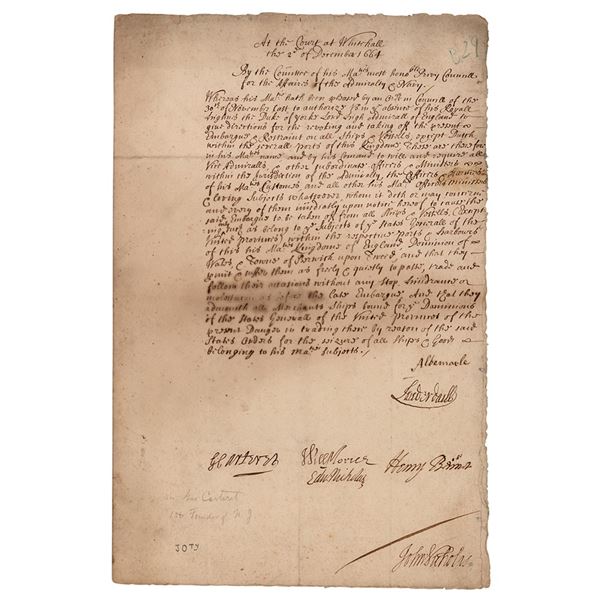 At the Court at Whitehall
the 2d of December 1664
B29
By the Comittee of his Mats most honoble Privy Councill
for the Affaires of the Admiralty & Navy
Whereas his Matie hath been pleased by an Order in Councill of the
30th of November last to authorize in ye absence of his Royall
highnes the Duke of Yorke Lord high Admirall of England to
give directions for the revoking and taking off the present
Embargue & Restraint on all Ships & Vessells, except Dutch
within the severall ports of this Kingdome, These are therefore
in his Mats name and by his comand to will and require all
Vice Admiralls, & other subordinate officers & Ministers
within the Jurisdiction of the Admiralty, the Officers &
of his Mats Customes, and all other his Mats officers ministers
& loving Subjects whatsoever whom it doth or may concerne
and every of them imediatly upon notice hereof to cause the
said Embargue to be taken off from all Ships & Vessells, (Except
such as belong to ye Subjects of ye States Generall of the
United provinces) within the respective ports & harbours
of this his Mats Kingdome of England, Dominion of
Wales & Towne of Berwick upon Tweed, and that they
permit & suffer them as freely & quietly to passe, trade and
follow their occasions without any stop hindrance or
molestacon as before the late Embargue, And that they
admonish all Merchants Ships bound for ye Dominions
of the States Generall of the United Provinces of the
present Danger in trading there by reason of the said
States Orders for the seizure of all ships & Goods
belonging to his Mats subjects./
Albemarle
Lauderdaill
G Carteret
Will Morice
Henry Bennet
Edw: Nicholas
Geo Carteret
Founder of N J
JOTY
John Nicholas